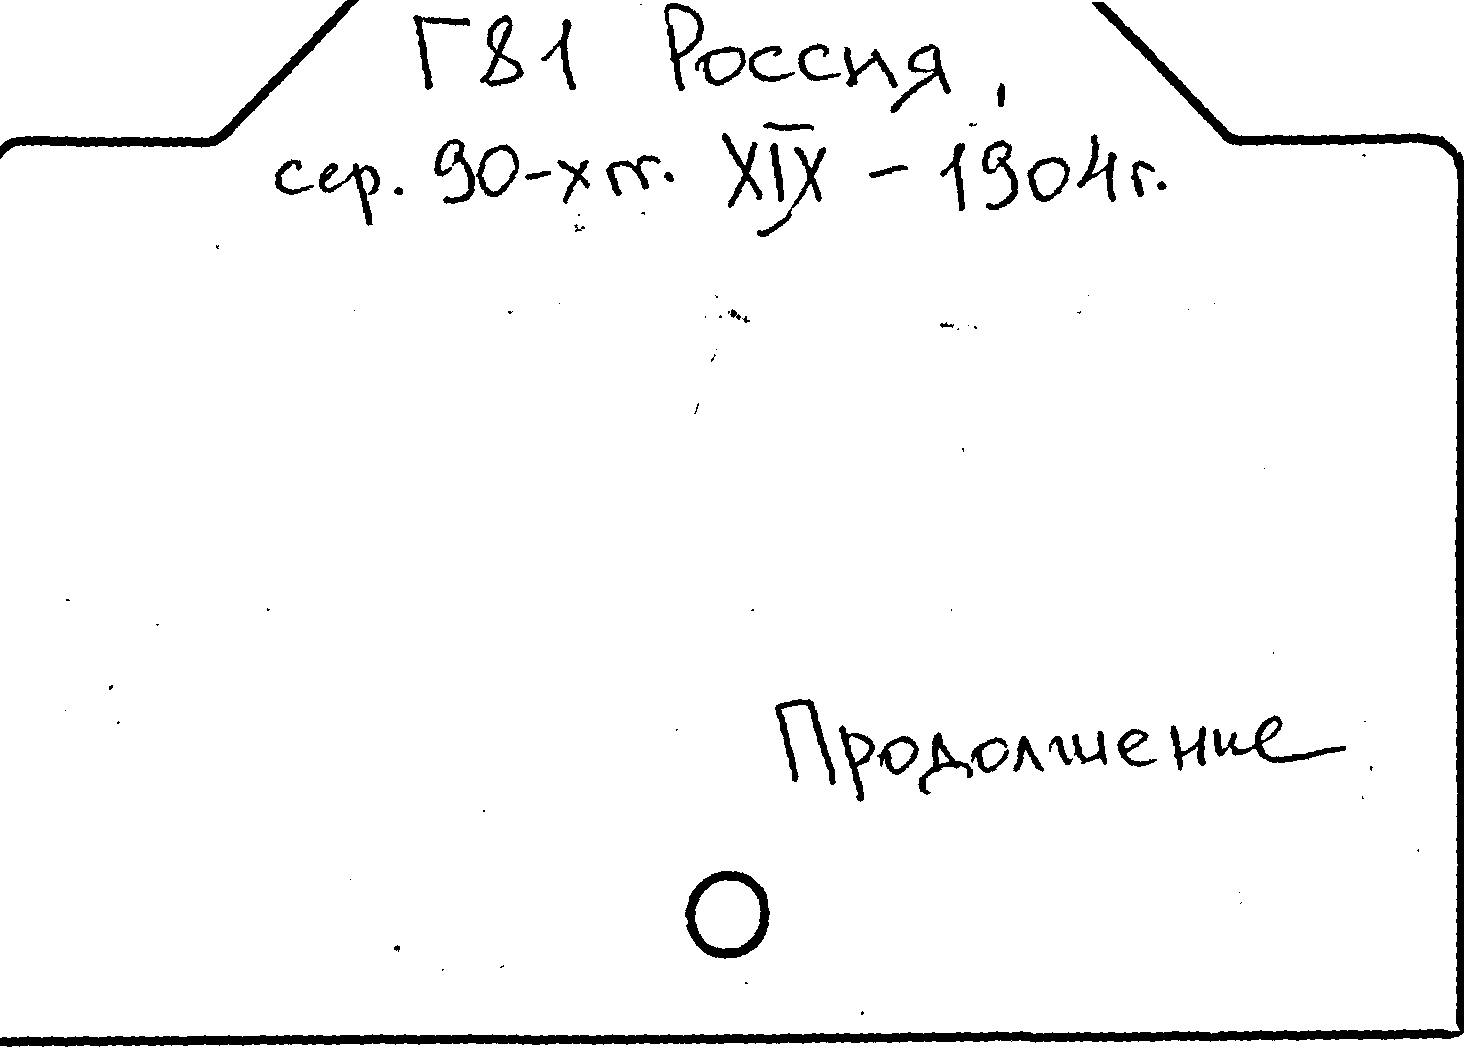 Г81 Россия,
сер. 90-х гг. XIX - 1904 г.
Продолжение